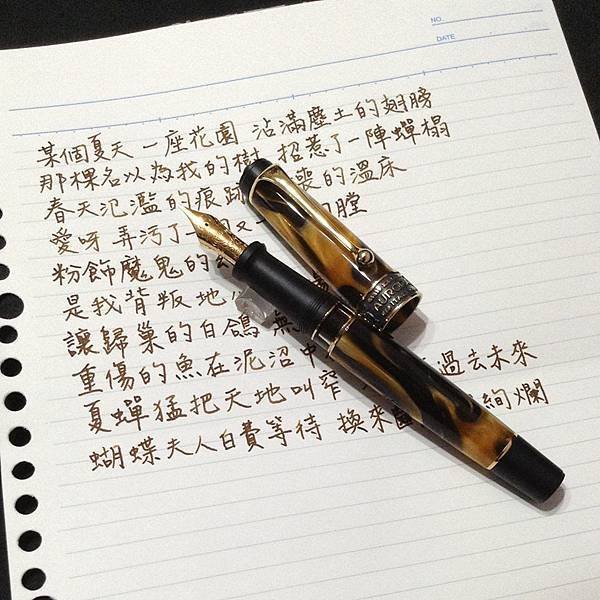 NO.
DATE
某個夏天 一座花園 沾滿塵土的翅膀
那棵名以為我的樹 招惹了一陣蟬榻
春天氾濫的痕跡 喪的溫床
愛呀弄污了一 又一 的膛
粉飾魔鬼的
是我背叛地
讓歸巢的白鴿 無
重傷的魚在泥沼中
夏蟬猛把天地叫窄 過去未來
蝴蝶夫人白費等待 換來 絢爛
AURORA